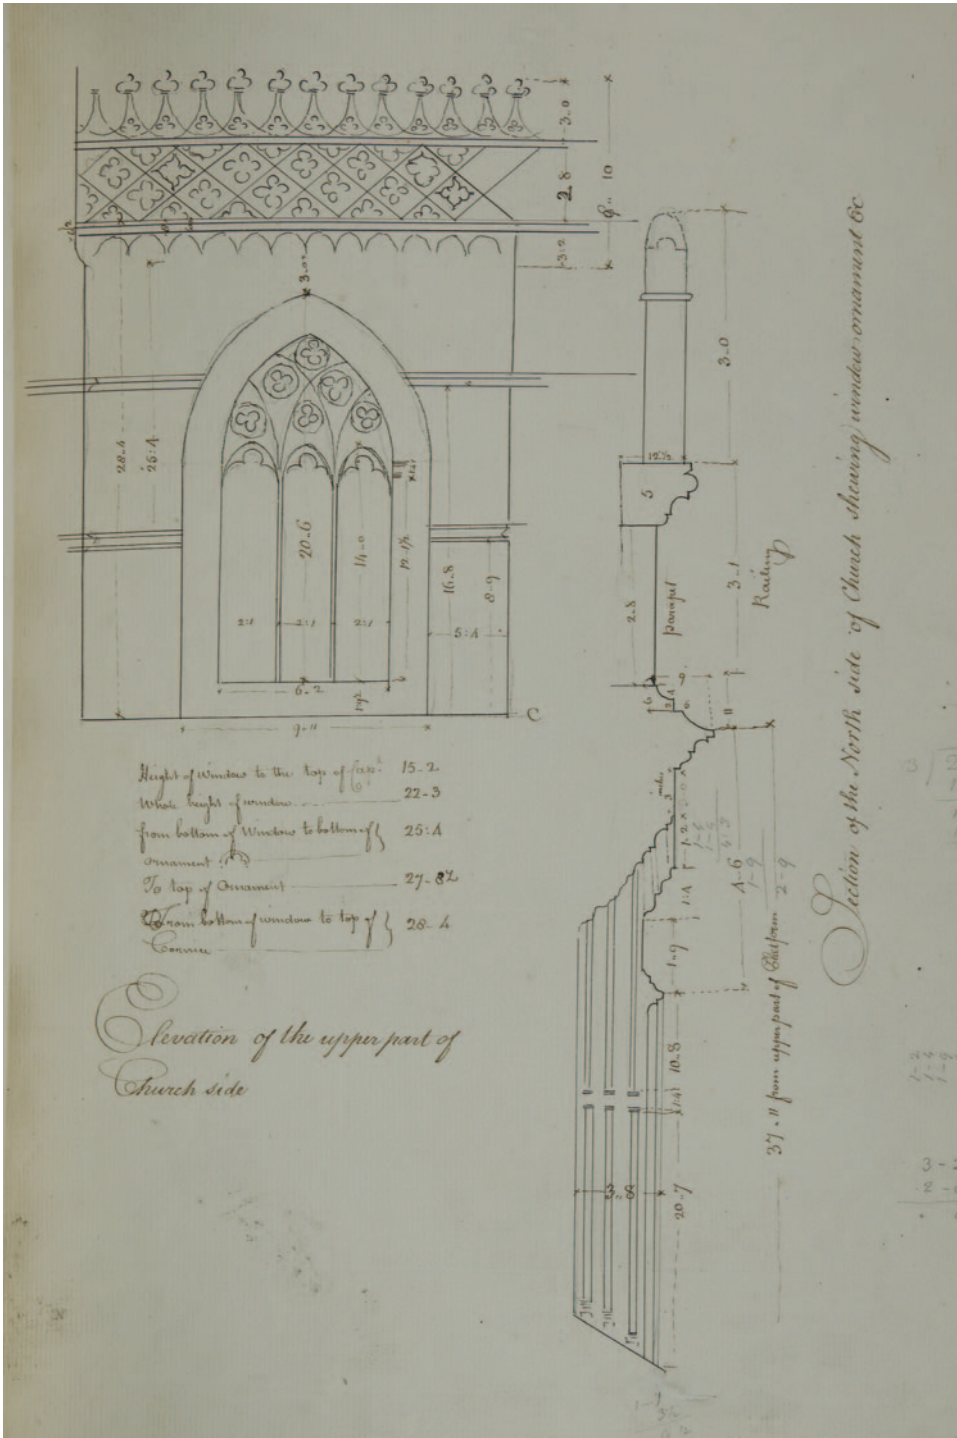 3-0
2 8
10
3:2
3-0"
28-4
25:4
20-6
14-0
12-1½
16-8
8-9
2:1
2:1
2:1
5:4
6-2
9-11
C
Height of window to the top of Cap.l 15-2
Whole height of window 22-3
from bottom of Window to bottom of } 25:4
ornament
To top of Ornament 27-8½
From bottom of window to top of } 28-4
Cornice
Elevation of the upper part of
Church side
3-0
12-½
5
2-8
parapet
3-1
Railing
9
6
11
3 inches
1-2
1:4
4-6
1-9
2-9
1-9
10-8
1:4
3-8
20-7
37-11 from upper part of Platform
Section of the North side of Church shewing window ornament &c
1-2
1-4
1-9